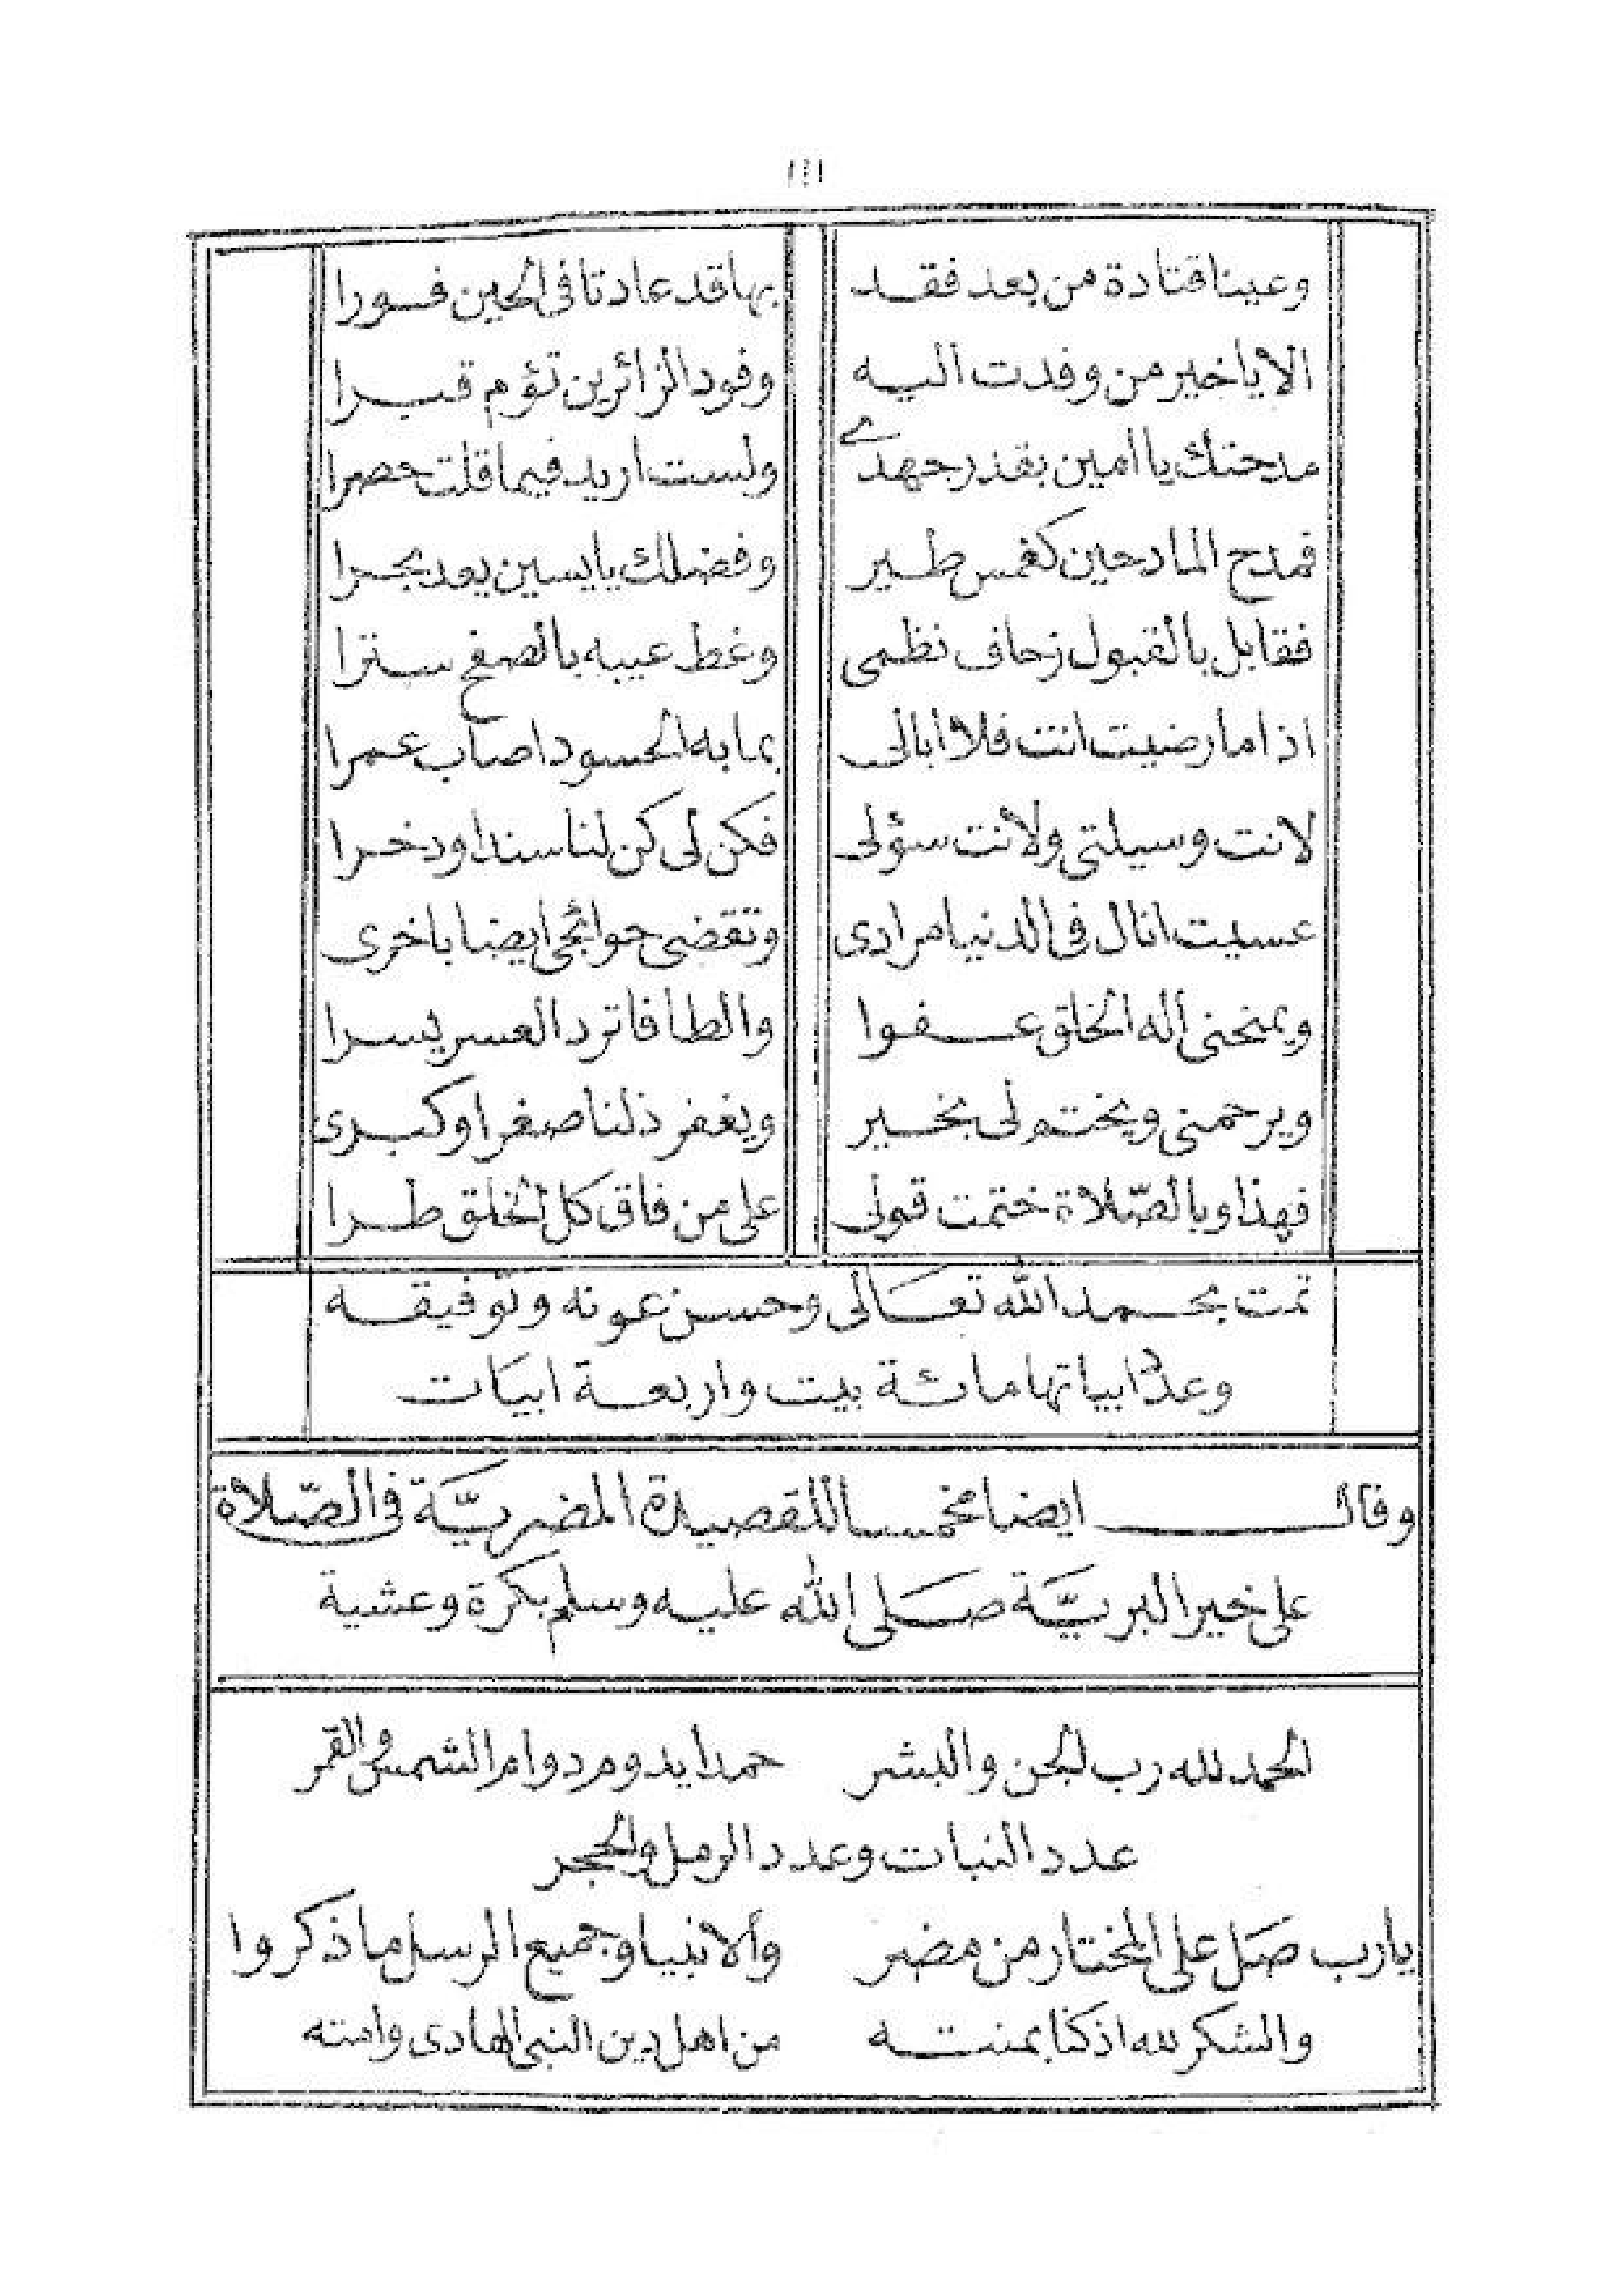 وعينا قتادة من بعد فقد بها قد عادتا فى الحين فورا
الا يا خير من وفدت اليه وفود الزائرين تؤم قبرا
مدحتك يا امين بقدر جهدى ولست اريد فيما قلت حصرا
فمدح المادحين كغمس طير وفضلك يا يسين يعد بحرا
فقابل بالقبول زحاف نظمى وغط عيبه بالصفح سترا
اذا ما رضيت انت فلا ابالى بما به الحسود اصاب عمرا
لانت وسيلتى ولانت سؤلى فكن لى كن لنا سندا ودخرا
عسيت انال فى الدنيا مرادى وتقضى حوائجى ايضا باخرى
ويمنحنى اله الخلق عفوا والطافا ترد العسر يسرا
ويرحمنى ويختم لى بخير ويغفر ذلنا صغرا وكبرى
فهذا وبالصّلاة ختمت قولى على من فاق كل الخلق طرا
تمت بحمد الله تعالى وحسن عونه وتوفيقه
وعدّ ابياتها مائة بيت واربعة ابيات
وقال ايضا مخمسا للقصيدة المضريّة فى الصّلاة
على خير البريّة صلى الله عليه وسلم بكرة وعشية
الحمد لله رب الجن والبشر حمدا يدوم دوام الشمس والقمر
عدد النبات وعدد الرمل والحجر
يارب صل على المختار من مضر والانبيا وجميع الرسل ما ذكروا
والشكر لله اذ كنا بمنته من اهل دين النبى الهادى وامته